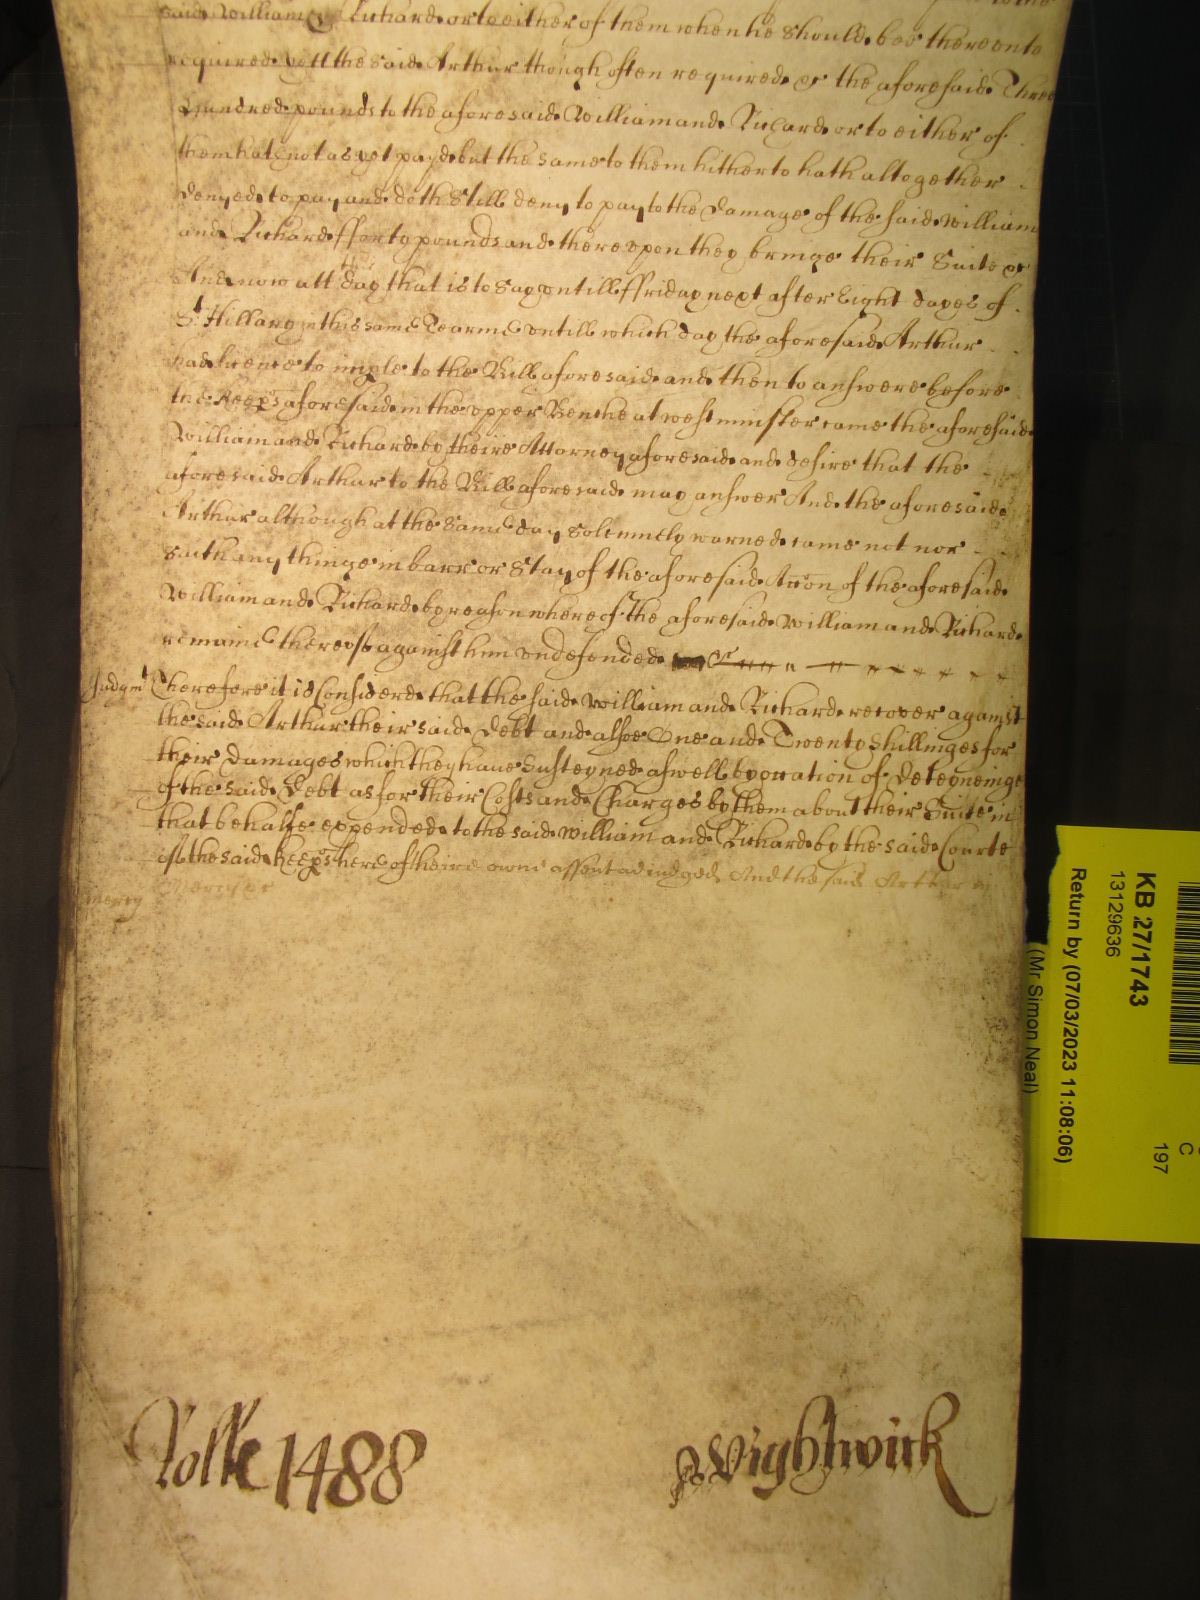 said William & Richard or to either of them when he should bee thereunto
required Yett the said Arthur though often required &c the aforesaid Three
hundred pounds to the aforesaid William and Richard or to either of
them hath not as yet payd but the same to them hitherto hath altogether
denyed to pay and doth still deny to pay to the damage of the said William
and Richard fforty pounds and thereupon they bringe their Suite &c
And now att this day that is to say untill ffriday next after Eight dayes of
St Hillary in this same Tearme untill which day the aforesaid Arthur
had licence to imple to the Bill aforesaid and then to answere before
the Keeps aforesaid in the upper Benche at westminster came the aforesaid
William and Richard by theire Attorney aforesaid and desire that the
aforesaid Arthur to the Bill aforesaid may answer And the aforesaid
Arthur although at the same day solemnely warned came not nor
saith any thinge in barr or stay of the aforesaid Accon of the aforesaid
William and Richard by reason whereof the aforesaid William and Richard
remaine thereof against him undefended &c
Judgmt Therefore it is Considered that the said William and Richard recover against
the said Arthur their said Debt and alsoe One and Twenty shillinges for
their Damages which they have susteyned aswell by occation of deteyneinge
of the said Debt as for their Costs and Charges by them about their Suite in
that behalfe expended to the said William and Richard by the said Courte
of the said Keeps here of theire owne assent adiudged And the said Arthur in
mercy Mercy &c
Rolle 1488
Wightwick
KB 27/1743
13129636
Return by (07/03/2023 11:08:06)
(Mr Simon Neal)
C
197